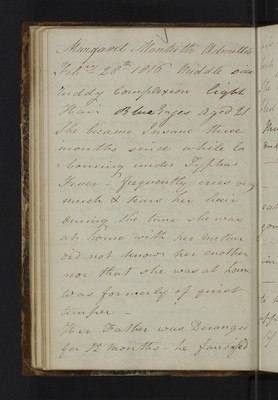 Margaret Monteith Admitted
Feby 28th 1816 Middle size
ruddy Complexion light
Hair Blue Eyes Aged 21
She became Insane three
months since while la
=bouring under Typhus
Fever - frequently cries very
much & tears her hair
during the time she was
at home with her Mother
did not know her mother
nor that she was at home
was formerly of quiet
temper -
Her Father was Deranged
for 12 months - he fancied